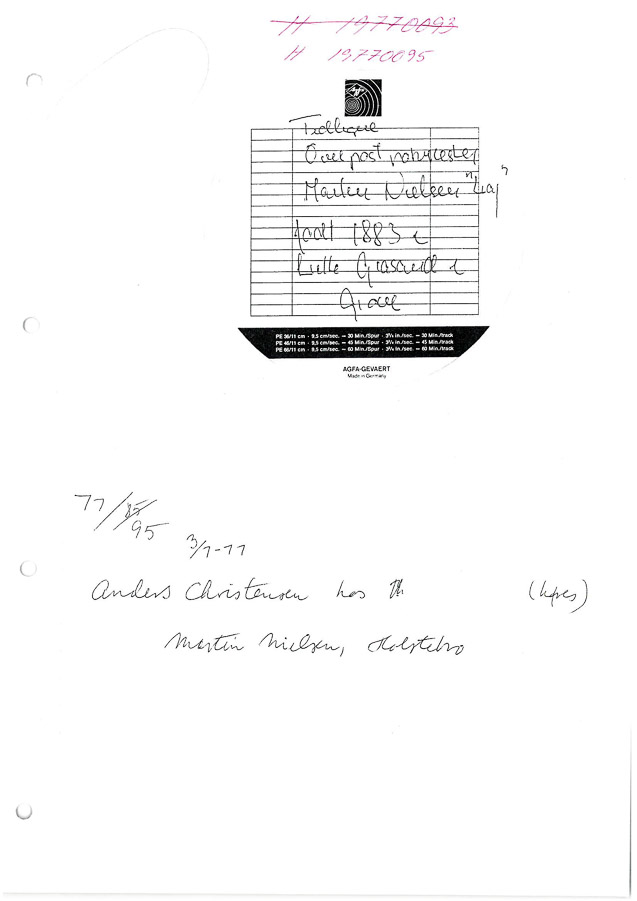 H 19770093
H 19770095
Agfa
Tidligere
Overpostpakmester
Martin Nielsen "Maj"
født 1883 i
Lille Grasdal i
Grove
PE 36/11 cm · 9,5 cm/sec. = 30 Min./Spur · 3¾ in./sec. = 30 Min./track
PE 46/11 cm · 9,5 cm/sec. = 45 Min./Spur · 3¾ in./sec. = 45 Min./track
PE 66/11 cm · 9,5 cm/sec. = 60 Min./Spur · 3¾ in./sec. = 60 Min./track
AGFA-GEVAERT
Made in Germany
77/85
95
3/7-77
Anders Christensen hos
Martin Nielsen, Holstebro